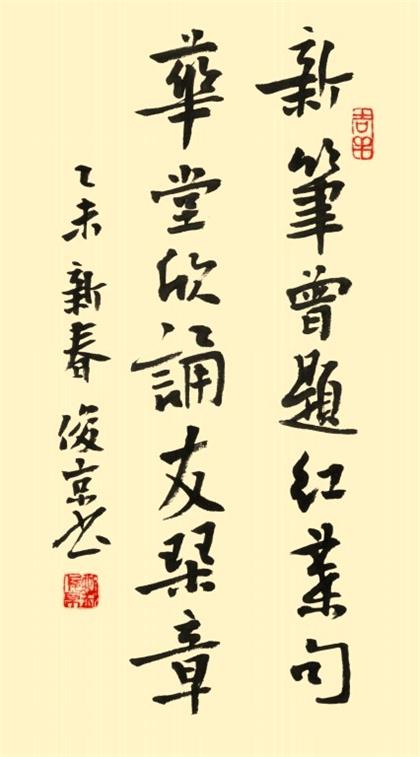 新筆曾題紅葉句
華堂欣誦友琹章
乙未新春俊京书